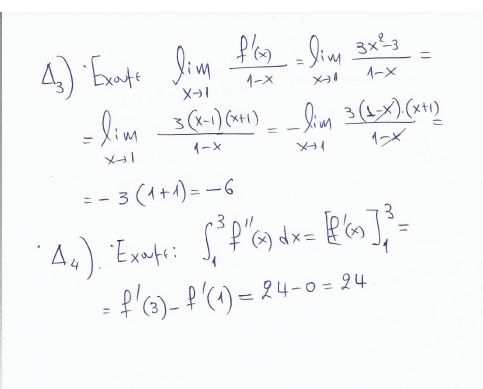 Δ₃) Έχουμε lim x→1 f'(x)/(1-x) = lim x→1 (3x²-3)/(1-x) =
= lim x→1 3(x-1)(x+1)/(1-x) = -lim x→1 3(1-x)·(x+1)/(1-x) =
= -3(1+1) = -6
Δ₄). Έχουμε: ∫₁³ f''(x) dx = [f'(x)]₁³ =
= f'(3) - f'(1) = 24-0 = 24